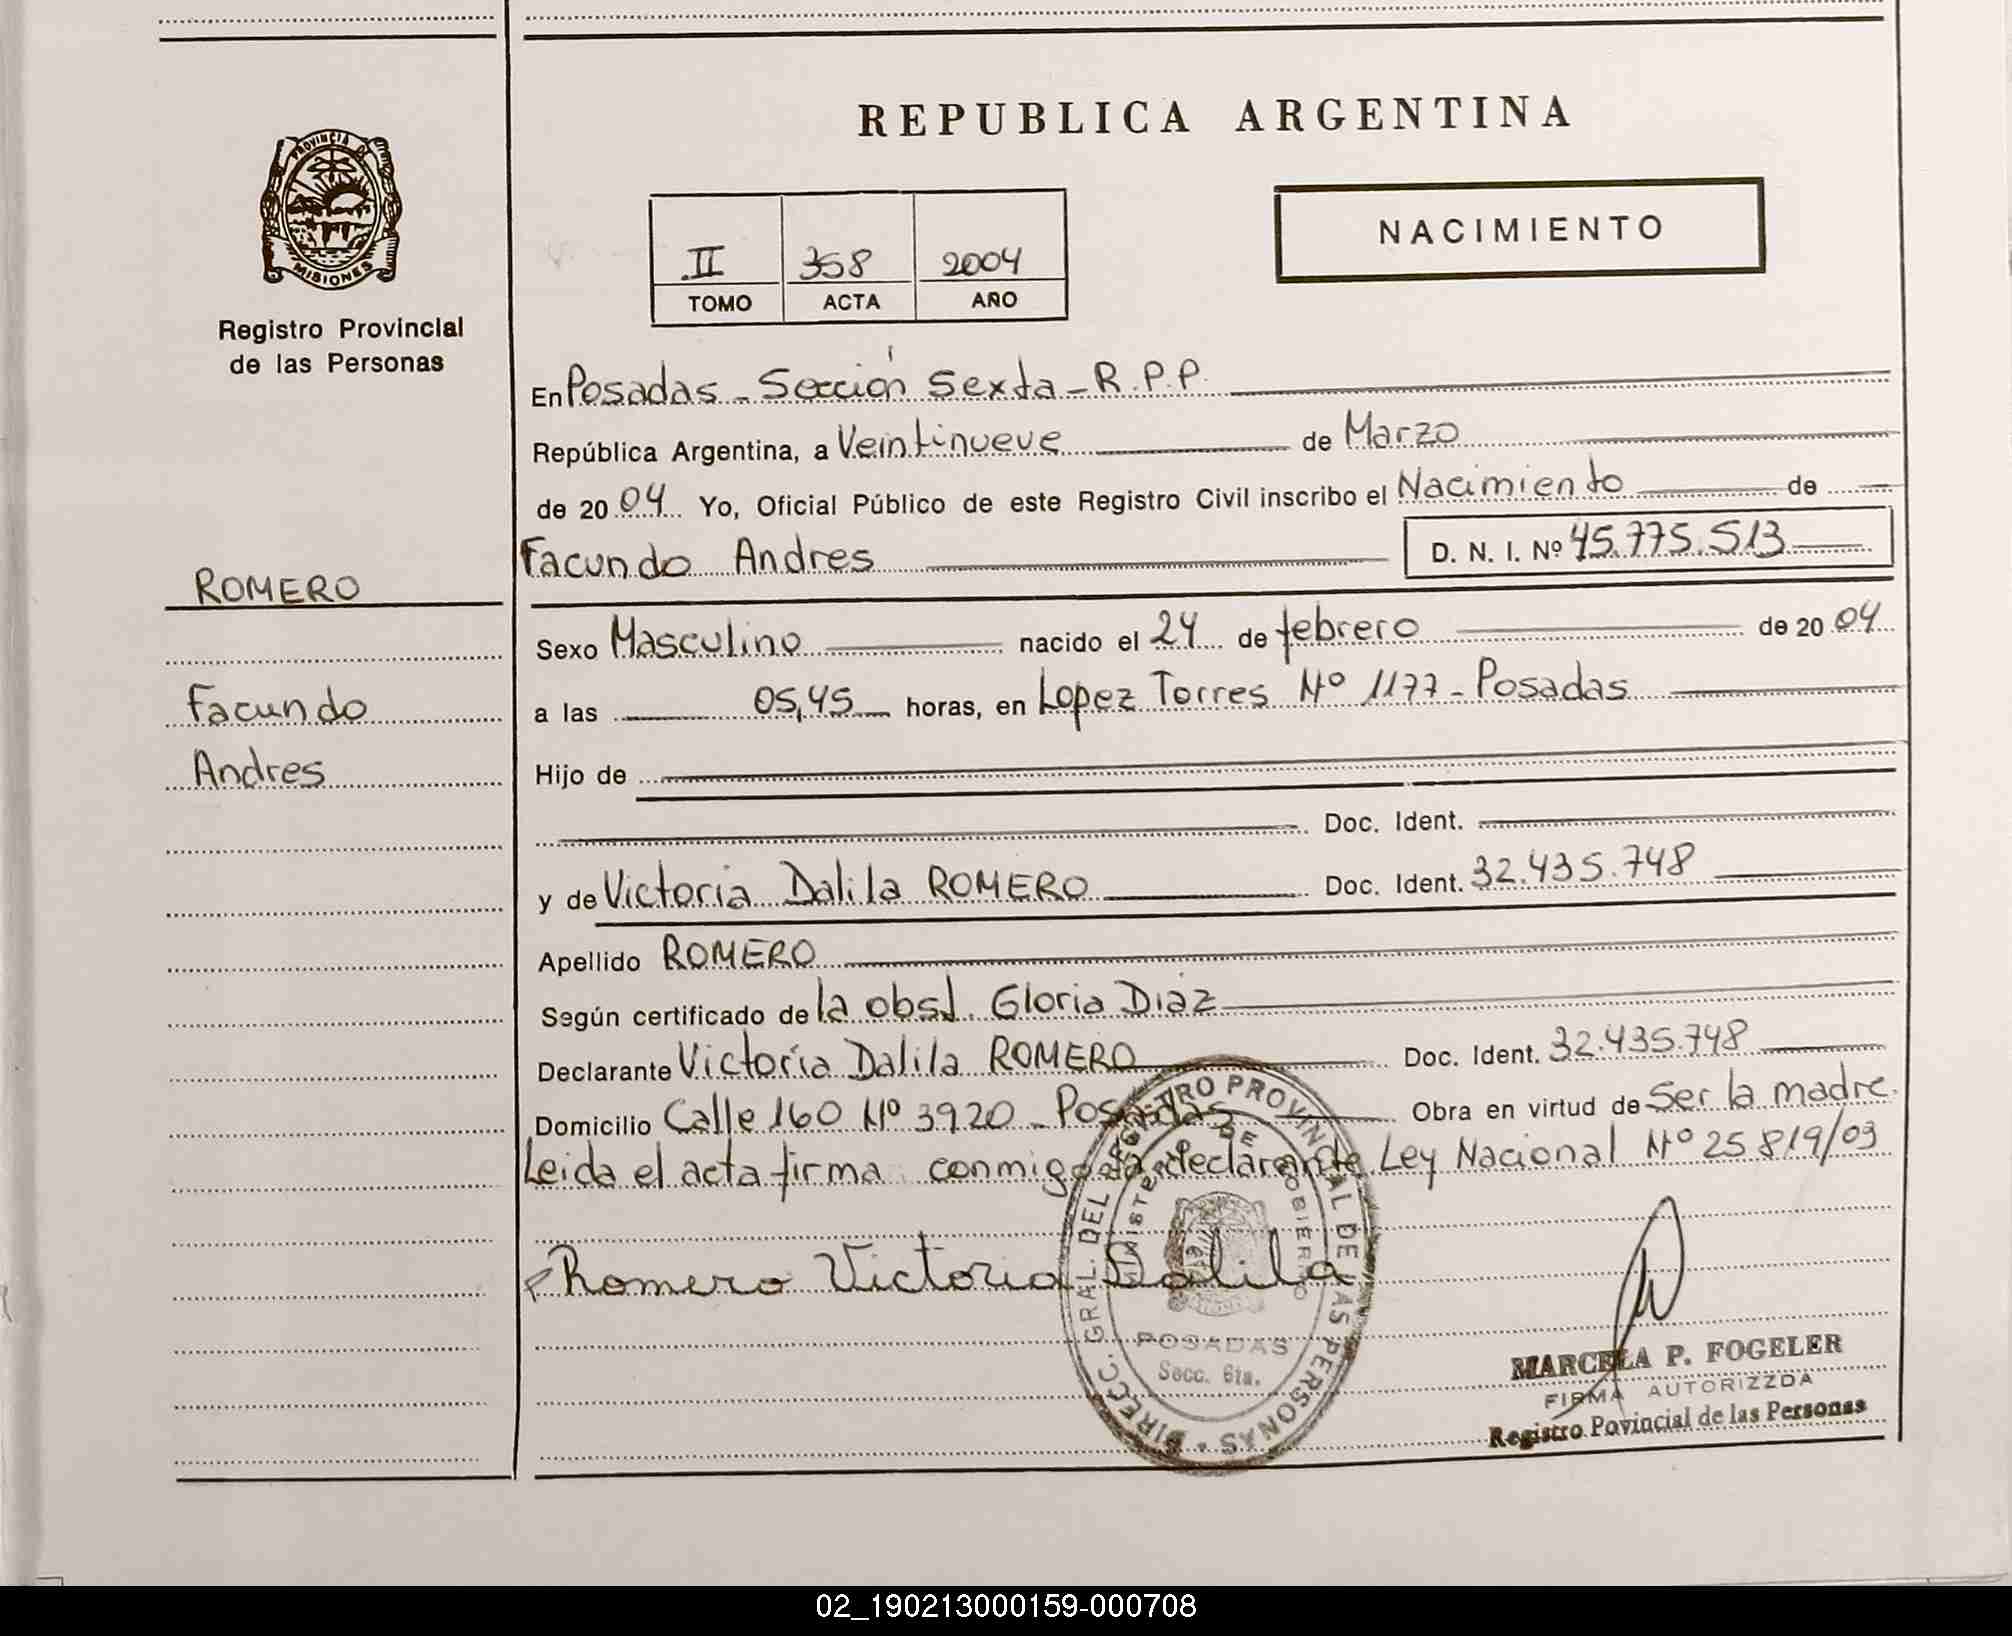 REPUBLICA ARGENTINA
PROVINCIA DE MISIONES
Registro Provincial
de las Personas
II 358 2004
TOMO ACTA AÑO
NACIMIENTO
En Posadas - Sección Sexta - R.P.P.
República Argentina, a Veintinueve de Marzo
de 2004 Yo, Oficial Público de este Registro Civil inscribo el Nacimiento de
Facundo Andres D. N. I. Nº 45.775.513
ROMERO
Facundo
Andres
Sexo Masculino nacido el 24 de febrero de 2004
a las 05,45 horas, en Lopez Torres Nº 1177 - Posadas
Hijo de
Doc. Ident.
y de Victoria Dalila ROMERO Doc. Ident. 32.435.748
Apellido ROMERO
Según certificado de la obst. Gloria Diaz
Declarante Victoria Dalila ROMERO Doc. Ident. 32.435.748
Domicilio Calle 160 Nº 3920 - Posadas Obra en virtud de Ser la madre.
Leida el acta firma conmigo la declarante. Ley Nacional Nº 25819/03
Romero Victoria Dalila
DIRECC. GRAL. DEL REGISTRO PROVINCIAL DE LAS PERSONAS
MINISTERIO DE GOBIERNO
POSADAS
Secc. 6ta.
MARCELA P. FOGELER
FIRMA AUTORIZZDA
Registro Povincial de las Personas
02_190213000159-000708